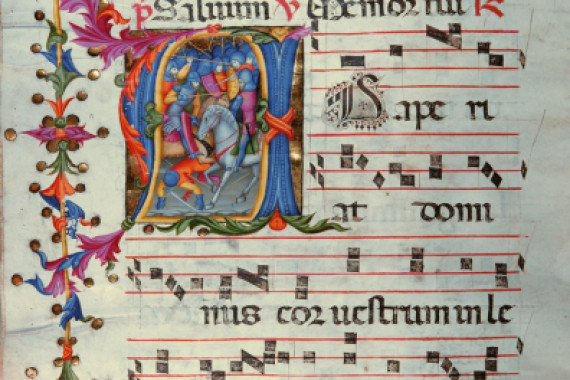 p Saluum V Memor fui R
A Dape ri
at domi
nus cor uestrum in le